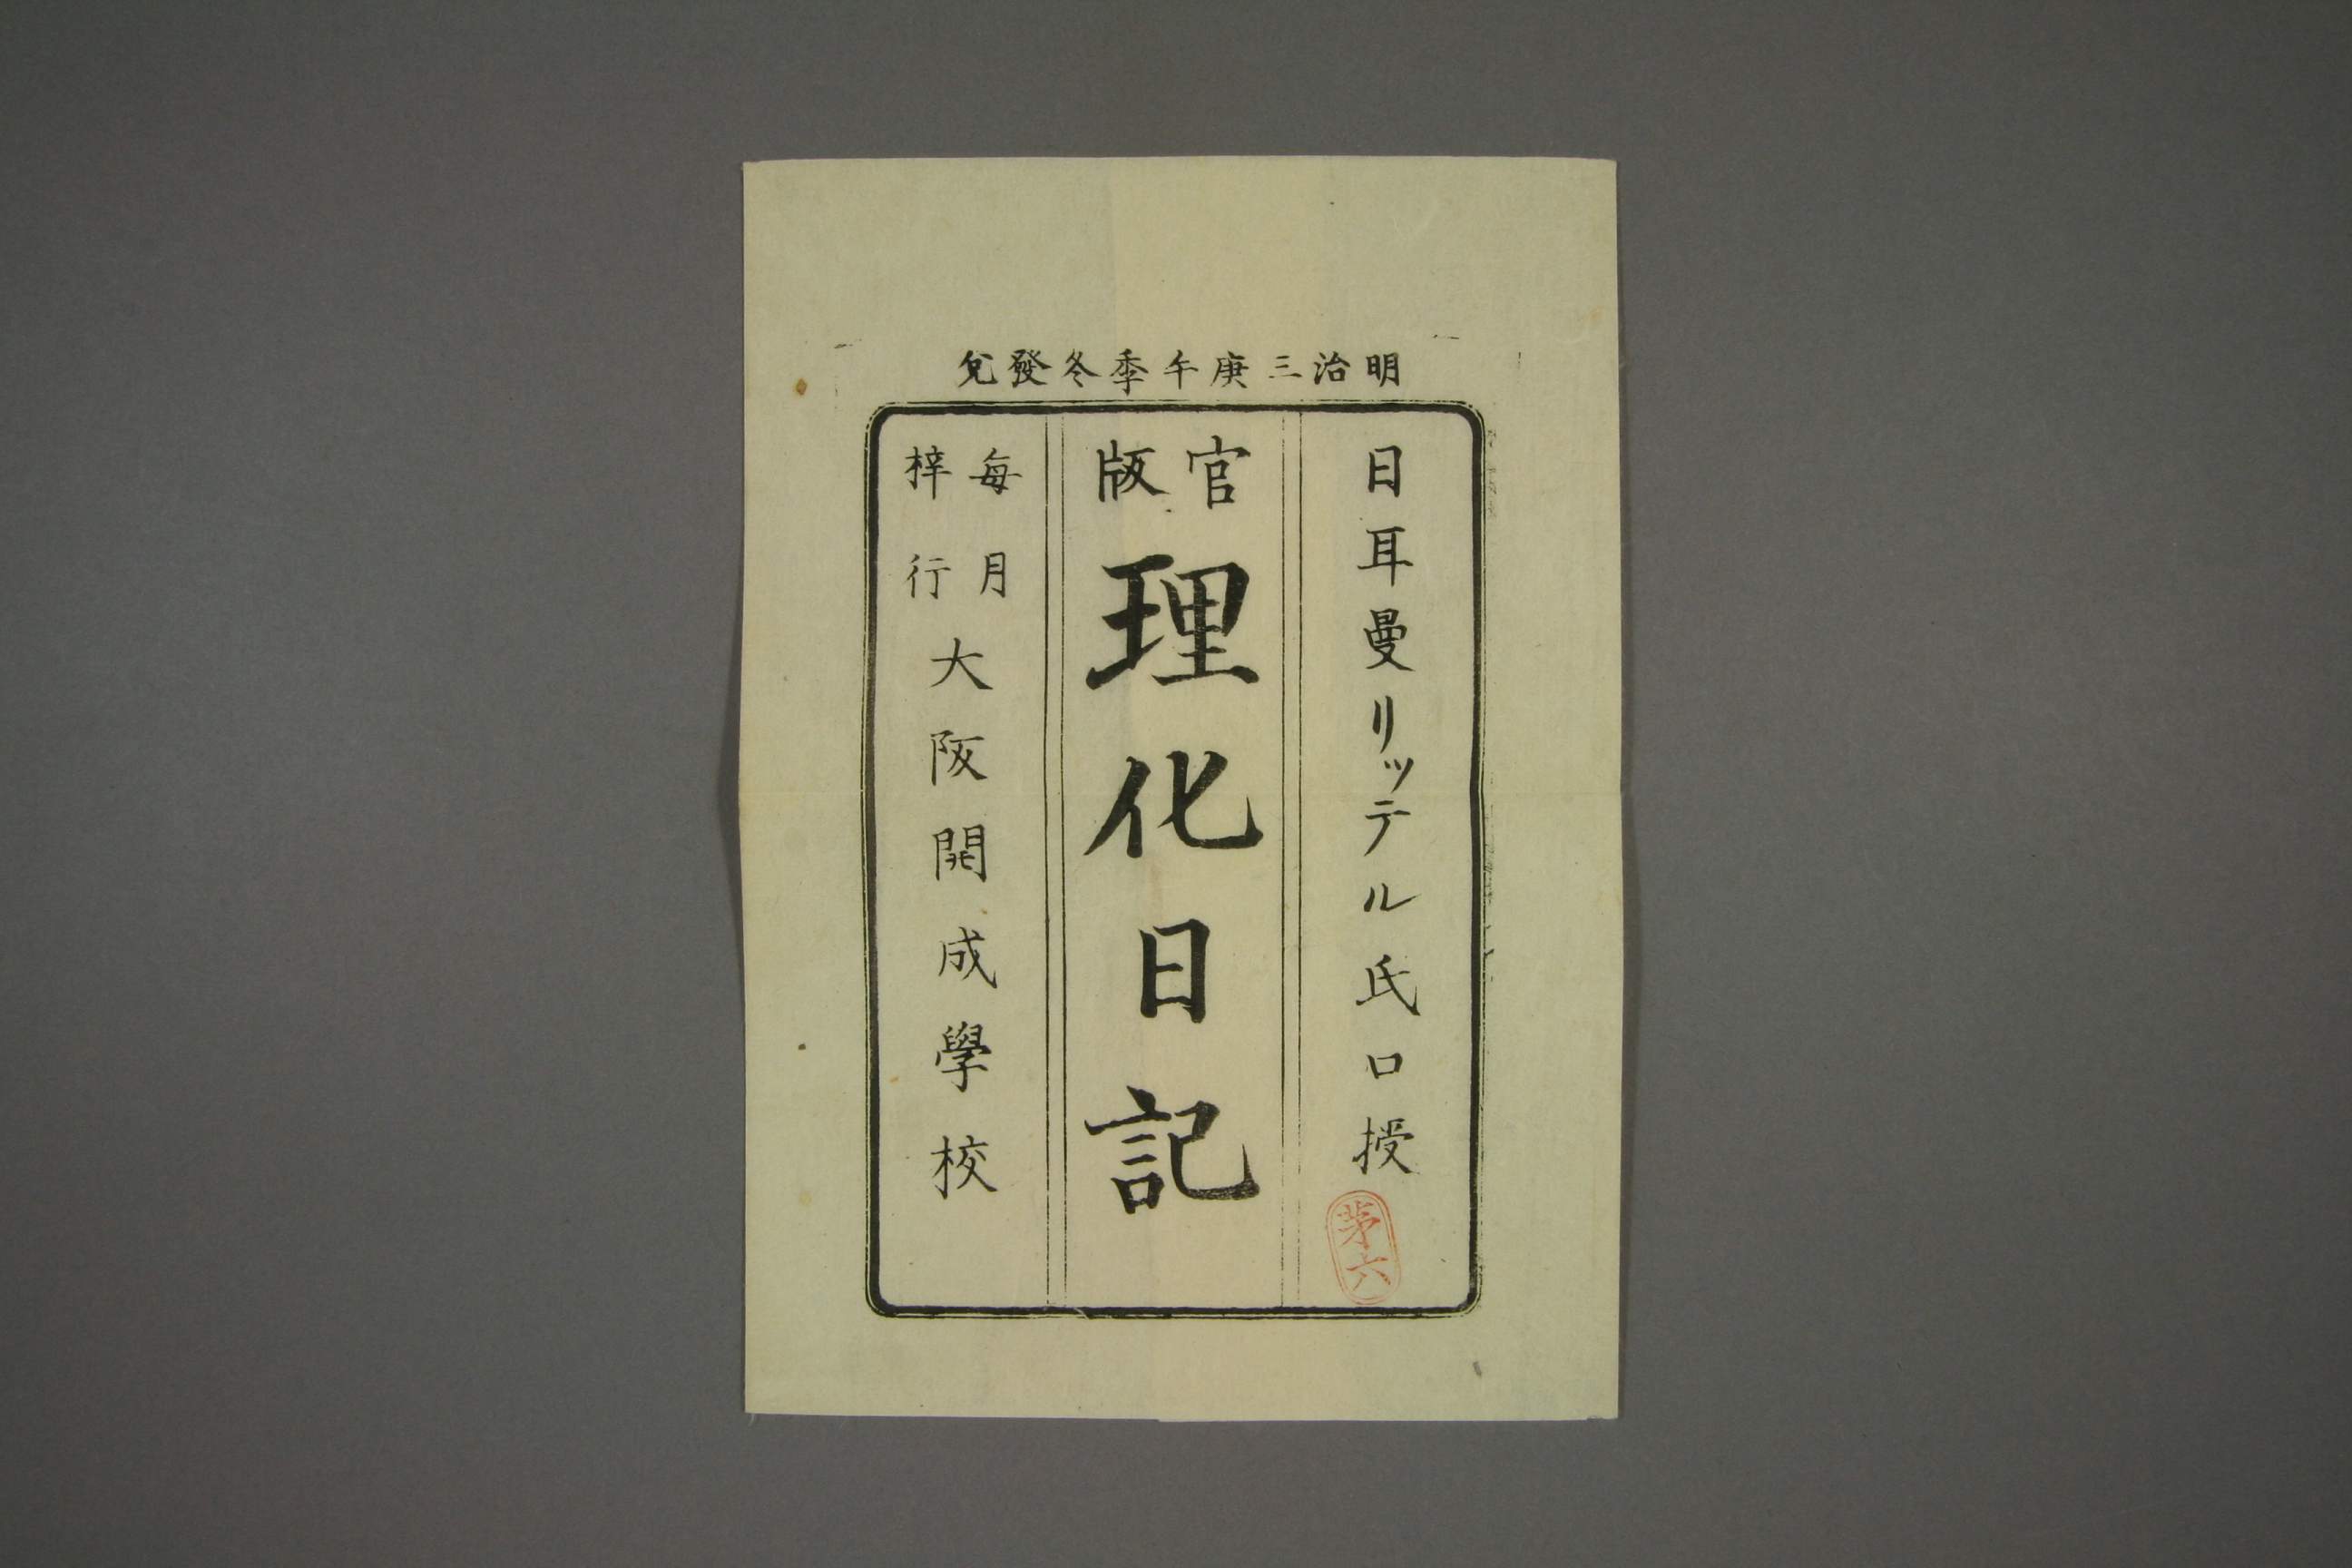 明治三庚午季冬發兌
日耳曼リッテル氏口授
第六
官版
理化日記
每月
梓行
大阪開成學校